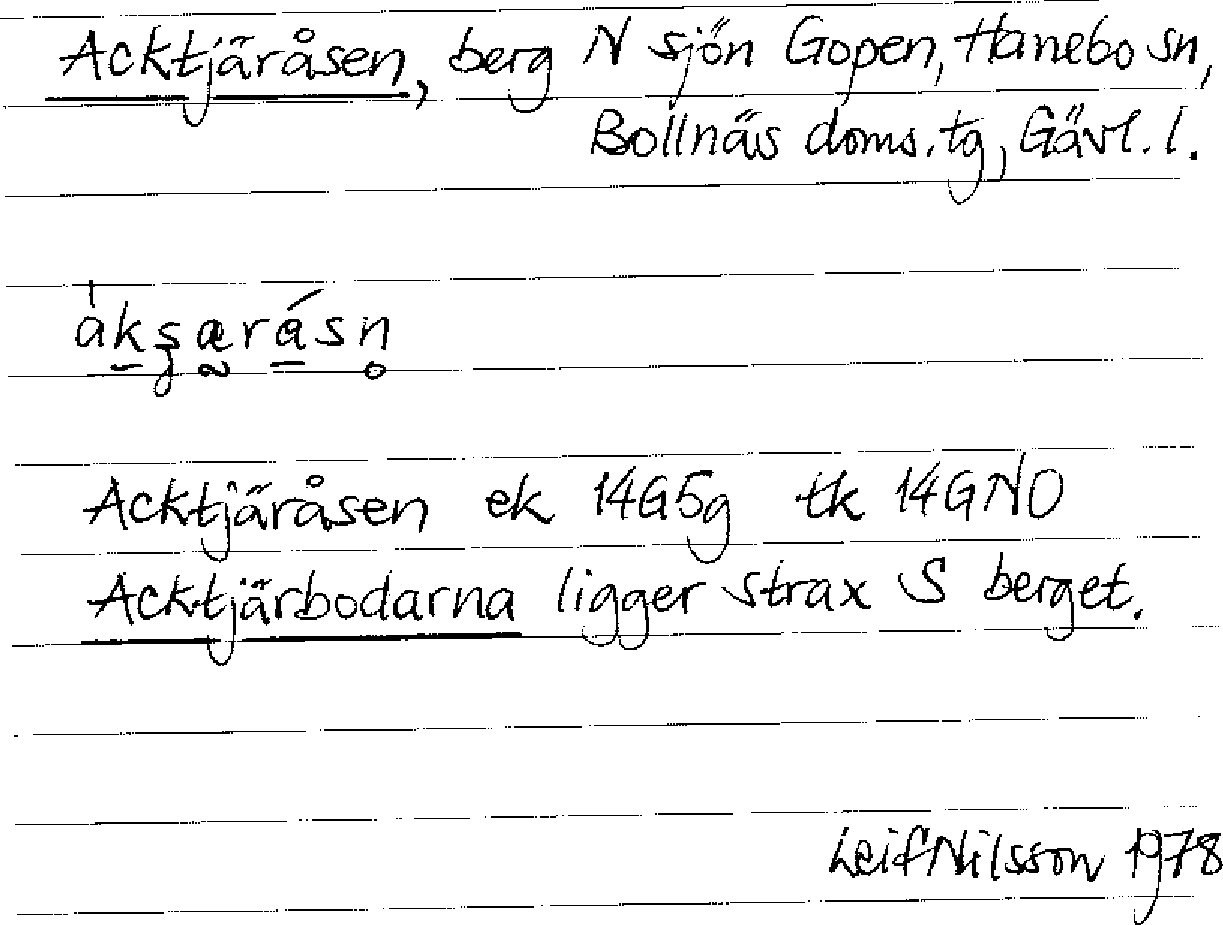 Acktjäråsen, berg N sjön Gopen, Hanebo sn,
Bollnäs doms.tg, Gävl.l.
Acktjäråsen ek 14G5g tk 14GNO
Acktjärbodarna ligger strax S berget.
Leif Nilsson 1978